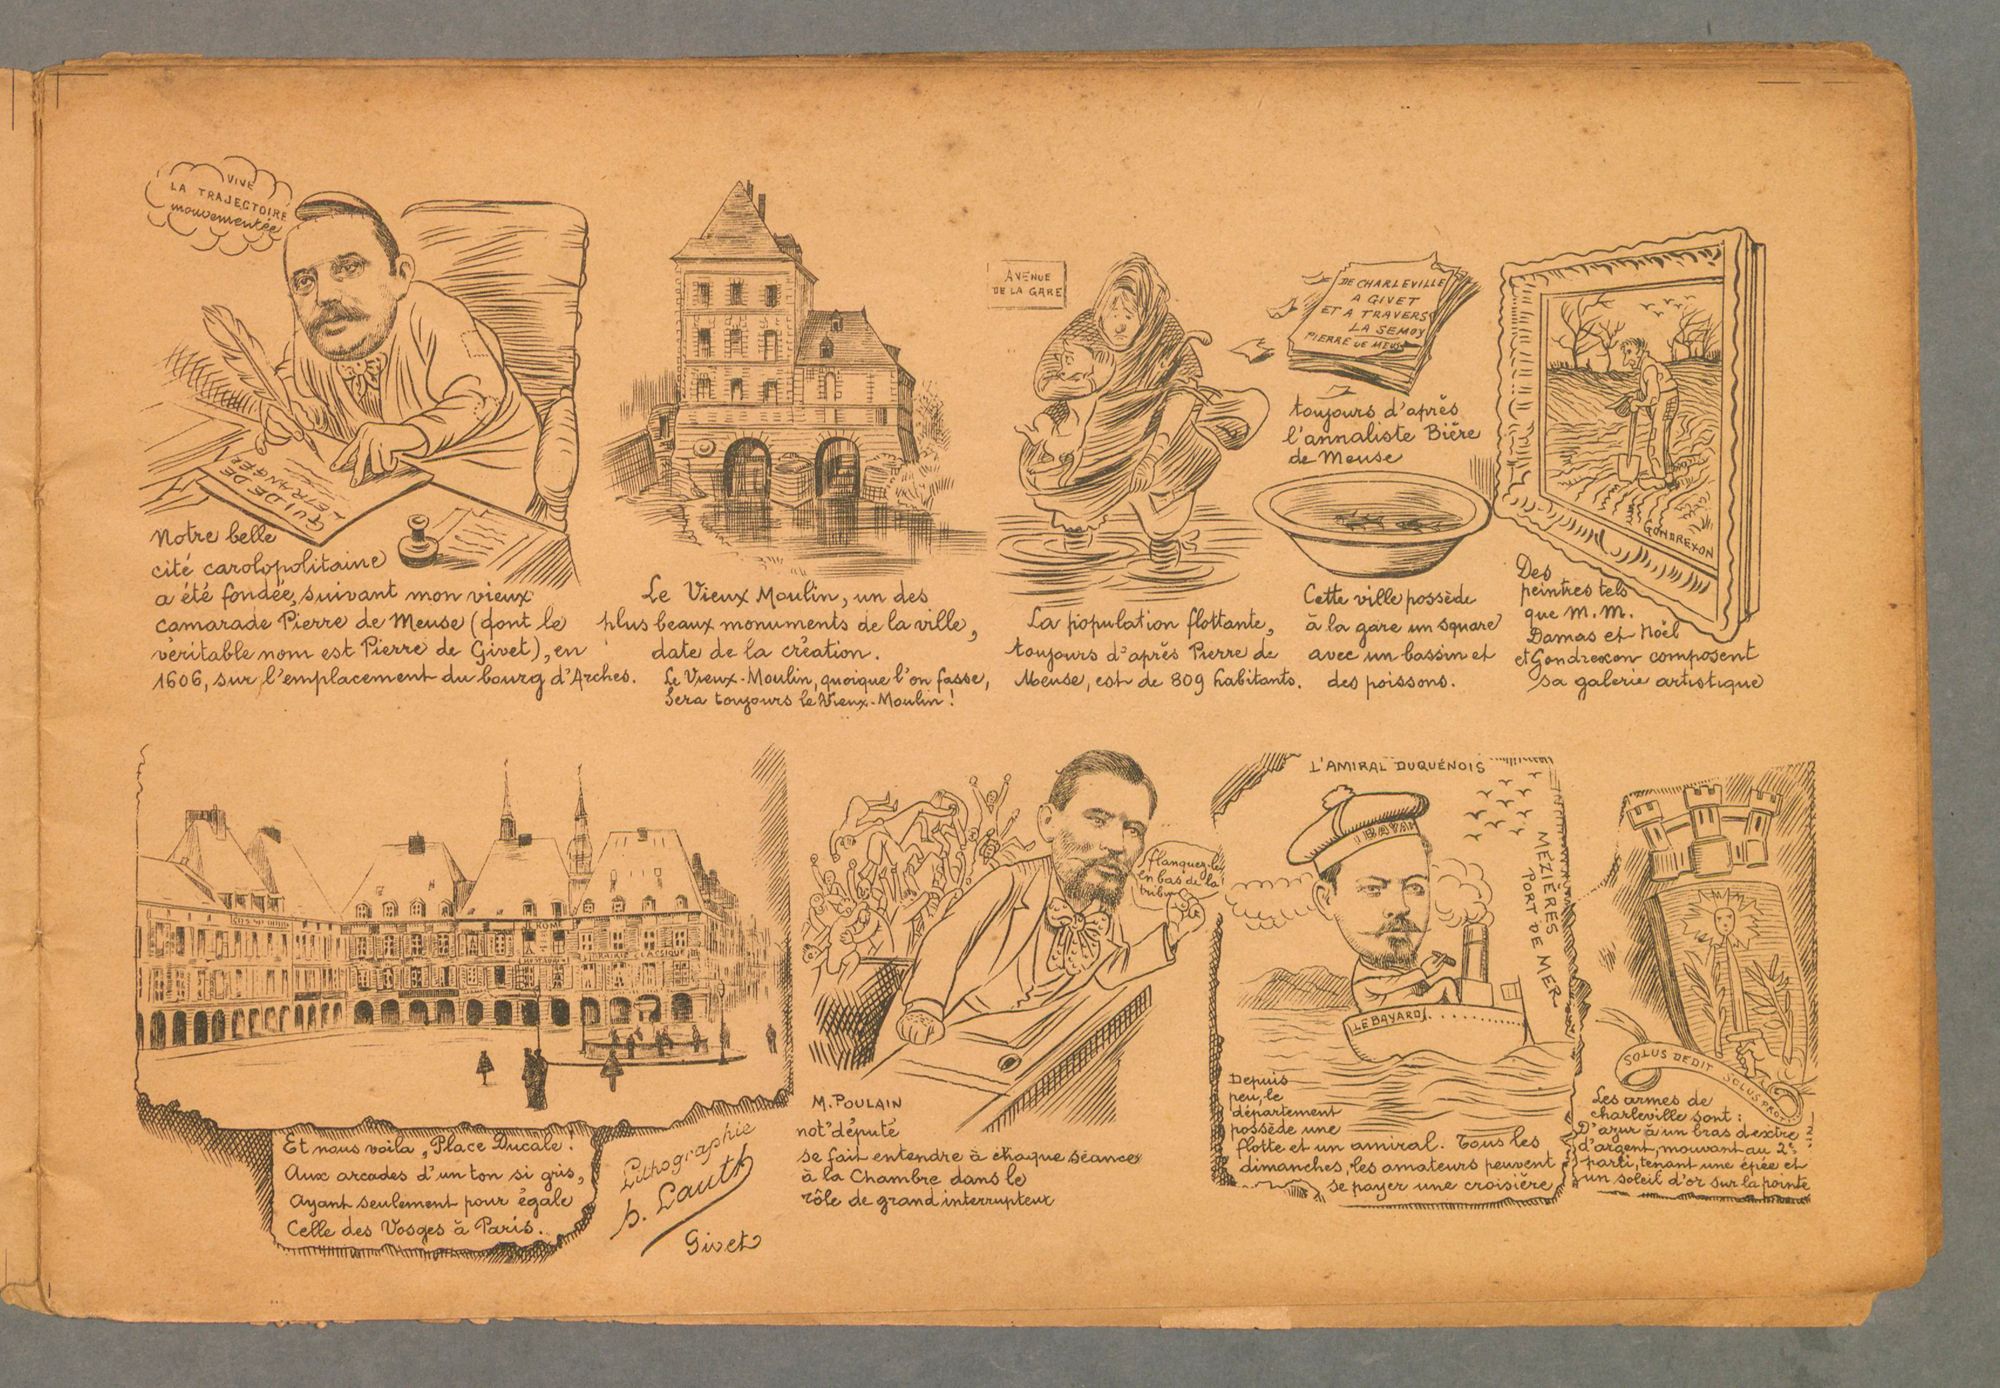 VIVE
LA TRAJECTOIRE
mouvementée
GUIDE DE
L'ETRANGER
Notre belle
cité carolopolitaine
a été fondée, suivant mon vieux
camarade Pierre de Meuse (dont le
véritable nom est Pierre de Givet), en
1606, sur l'emplacement du bourg d'Arches.
Le Vieux Moulin, un des
plus beaux monuments de la ville,
date de la création.
Le Vieux-Moulin, quoique l'on fasse,
Sera toujours le Vieux-Moulin!
AVENUE
DE LA GARE
La population flottante,
toujours d'après Pierre de
Meuse, est de 809 habitants.
DE CHARLEVILLE
A GIVET
ET A TRAVERS
LA SEMOY
PIERRE DE MEUSE
toujours d'après
l'annaliste Bière
de Meuse
Cette ville possède
à la gare un square
avec un bassin et
des poissons.
GONDREXON
Des
peintres tels
que M.M.
Damas et Noël
et Gondrexon composent
sa galerie artistique
LIBRAIRIE CLASSIQUE
Et nous voila, Place Ducale!
Aux arcades d'un ton si gris,
Ayant seulement pour égale
Celle des Vosges à Paris..
Lithographie
h. Lauth
Givet
flanquez-le
en bas de la
tribune
M. POULAIN
not' député
se fait entendre à chaque séance
à la Chambre dans le
rôle de grand interrupteur
L'AMIRAL DUQUÉNOIS
MÉZIÈRES
PORT DE MER
LE BAYARD
Depuis
peu, le
département
possède une
flotte et un amiral. Tous les
dimanches, les amateurs peuvent
se payer une croisière
SOLUS DEDIT SOLUS PROT
Les armes de
charleville sont:
D'azur à un bras dextre
d'argent, mouvant au 2e
parti, tenant une épée et
un soleil d'or sur la pointe